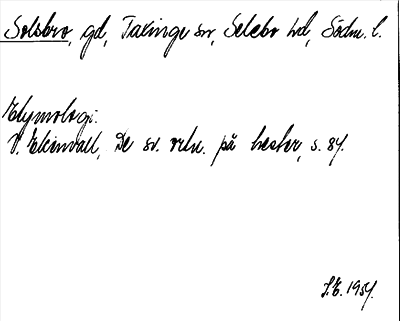 Solsbro, gd, Taxinge sn, Selebo hd, Södm. l.
Etymologi:
V. Ekenvall, De sv. ortn. på hester, s. 84.
S.E. 1954.